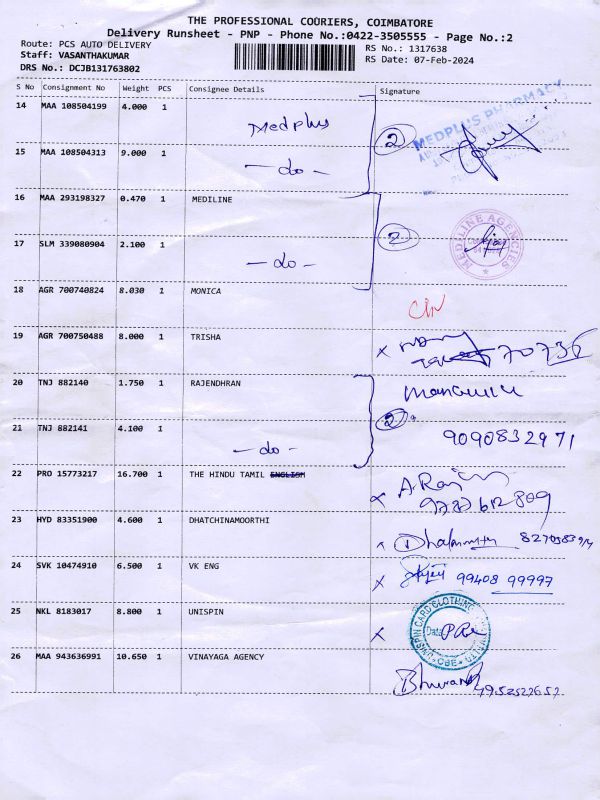 THE PROFESSIONAL COURIERS, COIMBATORE
Delivery Runsheet - PNP - Phone No.:0422-3505555 - Page No.:2
Route: PCS AUTO DELIVERY
Staff: VASANTHAKUMAR
DRS No.: DCJB131763802
RS No.: 1317638
RS Date: 07-Feb-2024
S No Consignment No Weight PCS Consignee Details Signature
14 MAA 108504199 4.000 1 Medplus
MEDPLUS PHARMACY
15 MAA 108504313 9.000 1 - do - 2
16 MAA 293198327 0.470 1 MEDILINE
17 SLM 339080904 2.100 1 - do - 2
MEDILINE AGENCIES
18 AGR 700740824 8.030 1 MONICA
19 AGR 700750488 8.000 1 TRISHA
70736
20 TNJ 882140 1.750 1 RAJENDHRAN
21 TNJ 882141 4.100 1 - do - 2
9090832971
22 PRO 15773217 16.700 1 THE HINDU TAMIL ENGLISH
A. Raj
23 HYD 83351900 4.600 1 DHATCHINAMOORTHI
24 SVK 10474910 6.500 1 VK ENG
99408 99997
25 NKL 8183017 8.800 1 UNISPIN
UNISPIN CARD CLOTHING
CBE
26 MAA 943636991 10.650 1 VINAYAGA AGENCY